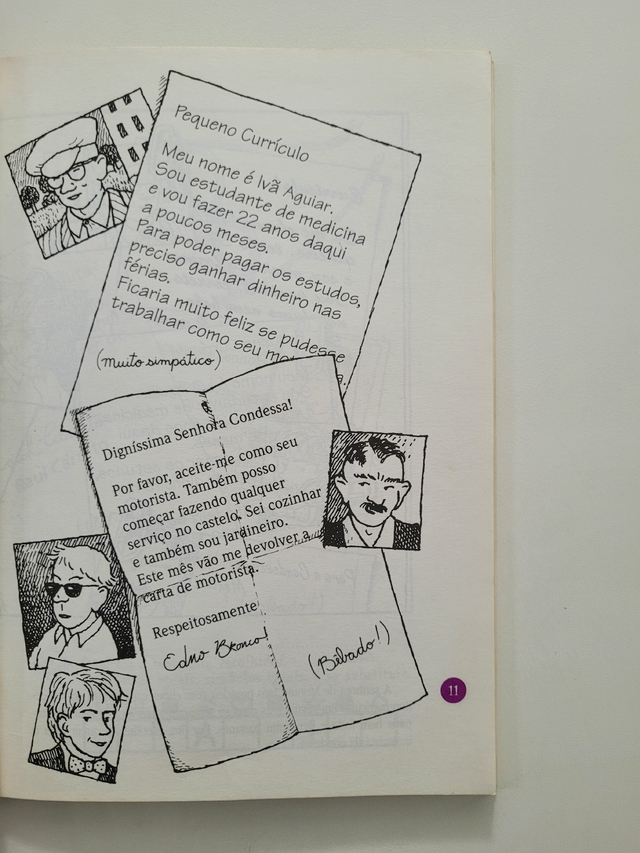 Pequeno Currículo
Meu nome é Ivã Aguiar.
Sou estudante de medicina
e vou fazer 22 anos daqui
a poucos meses.
Para poder pagar os estudos,
preciso ganhar dinheiro nas
férias.
Ficaria muito feliz se pudesse
trabalhar como seu
(muito simpático)
Digníssima Senhora Condessa!
Por favor, aceite-me como seu
motorista. Também posso
começar fazendo qualquer
serviço no castelo. Sei cozinhar
e também sou jardineiro.
Este mês vão me devolver a
carta de motorista.
Respeitosamente
Edno Bronco
(Bêbado!)
11